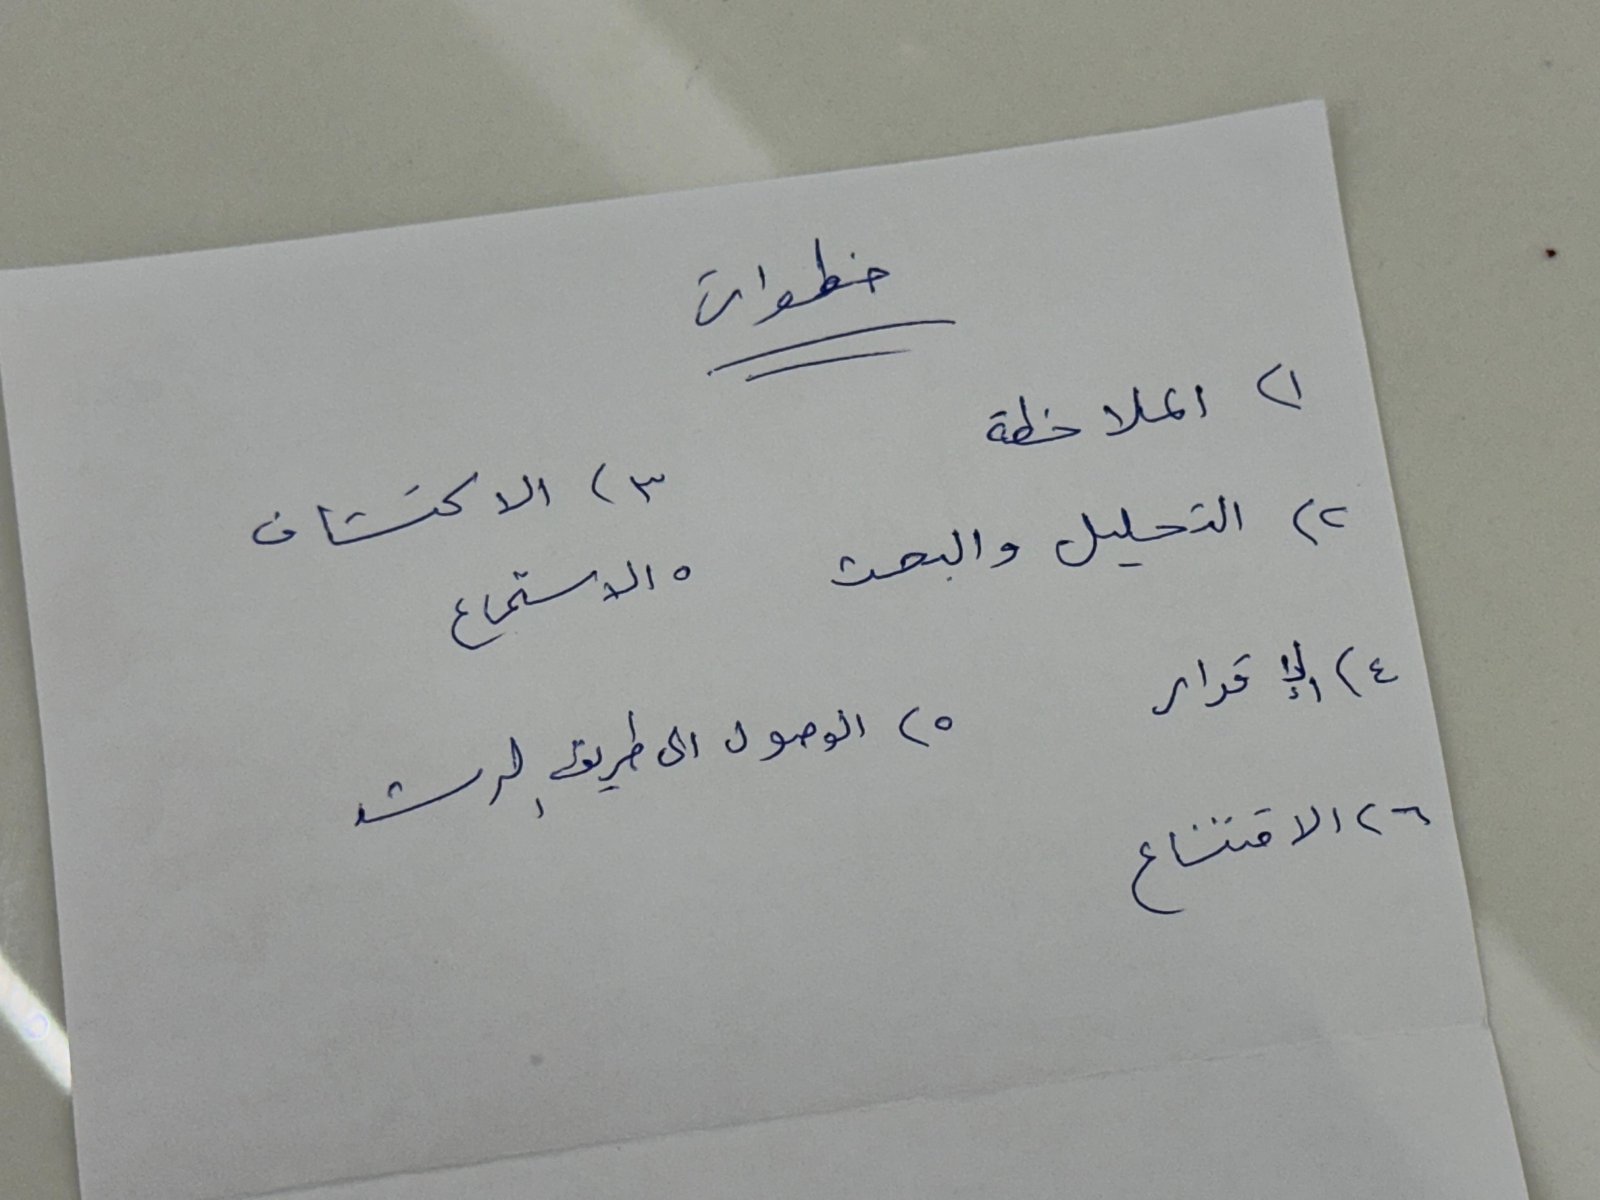 خطوات
١) الملاحظة
٢) التحليل والبحث
٣) الاكتشاف
٥ الاستماع
٤) الإقرار
٥) الوصول الى طريق الرشد
٦) الاقتناع